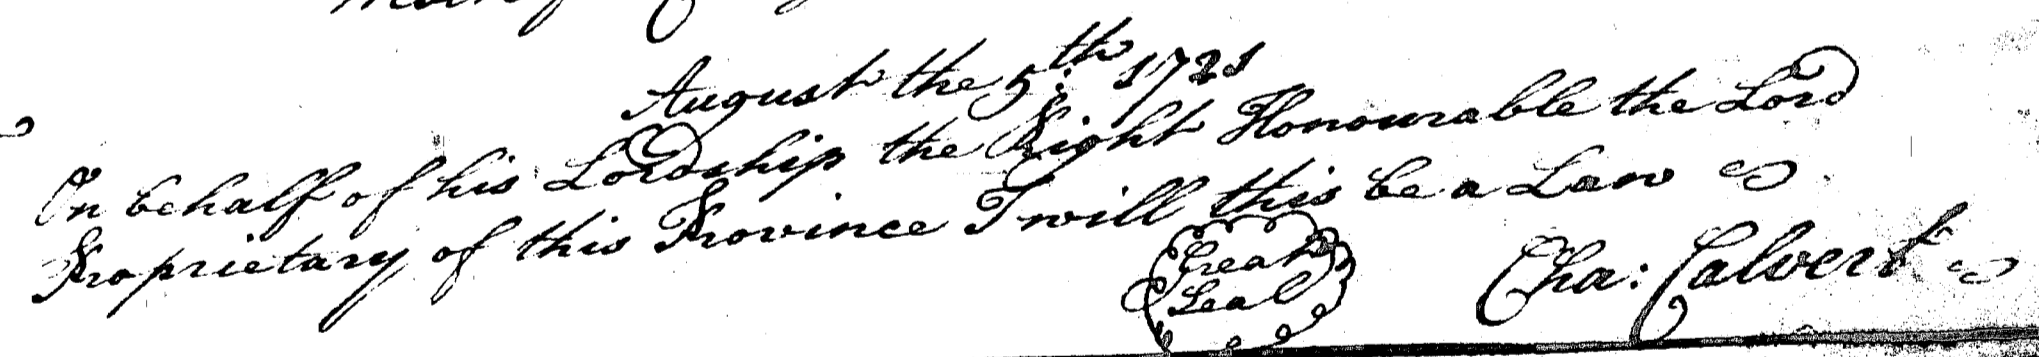 August the 5th 1721
On behalf of his Lordship the Right Honourable the Lord
Proprietary of this Province I will this be a Law
Great
Seal
Cha: Calvert